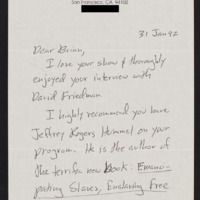 San Francisco, CA 94102
31 Jan 92
Dear Brian,
I love your show & thoroughly
enjoyed your interview with
David Friedman
I highly recommend you have
Jeffrey Rogers Hummel on your
program. He is the author of
the terrific new book: Emanci-
pating Slaves, Enslaving Free